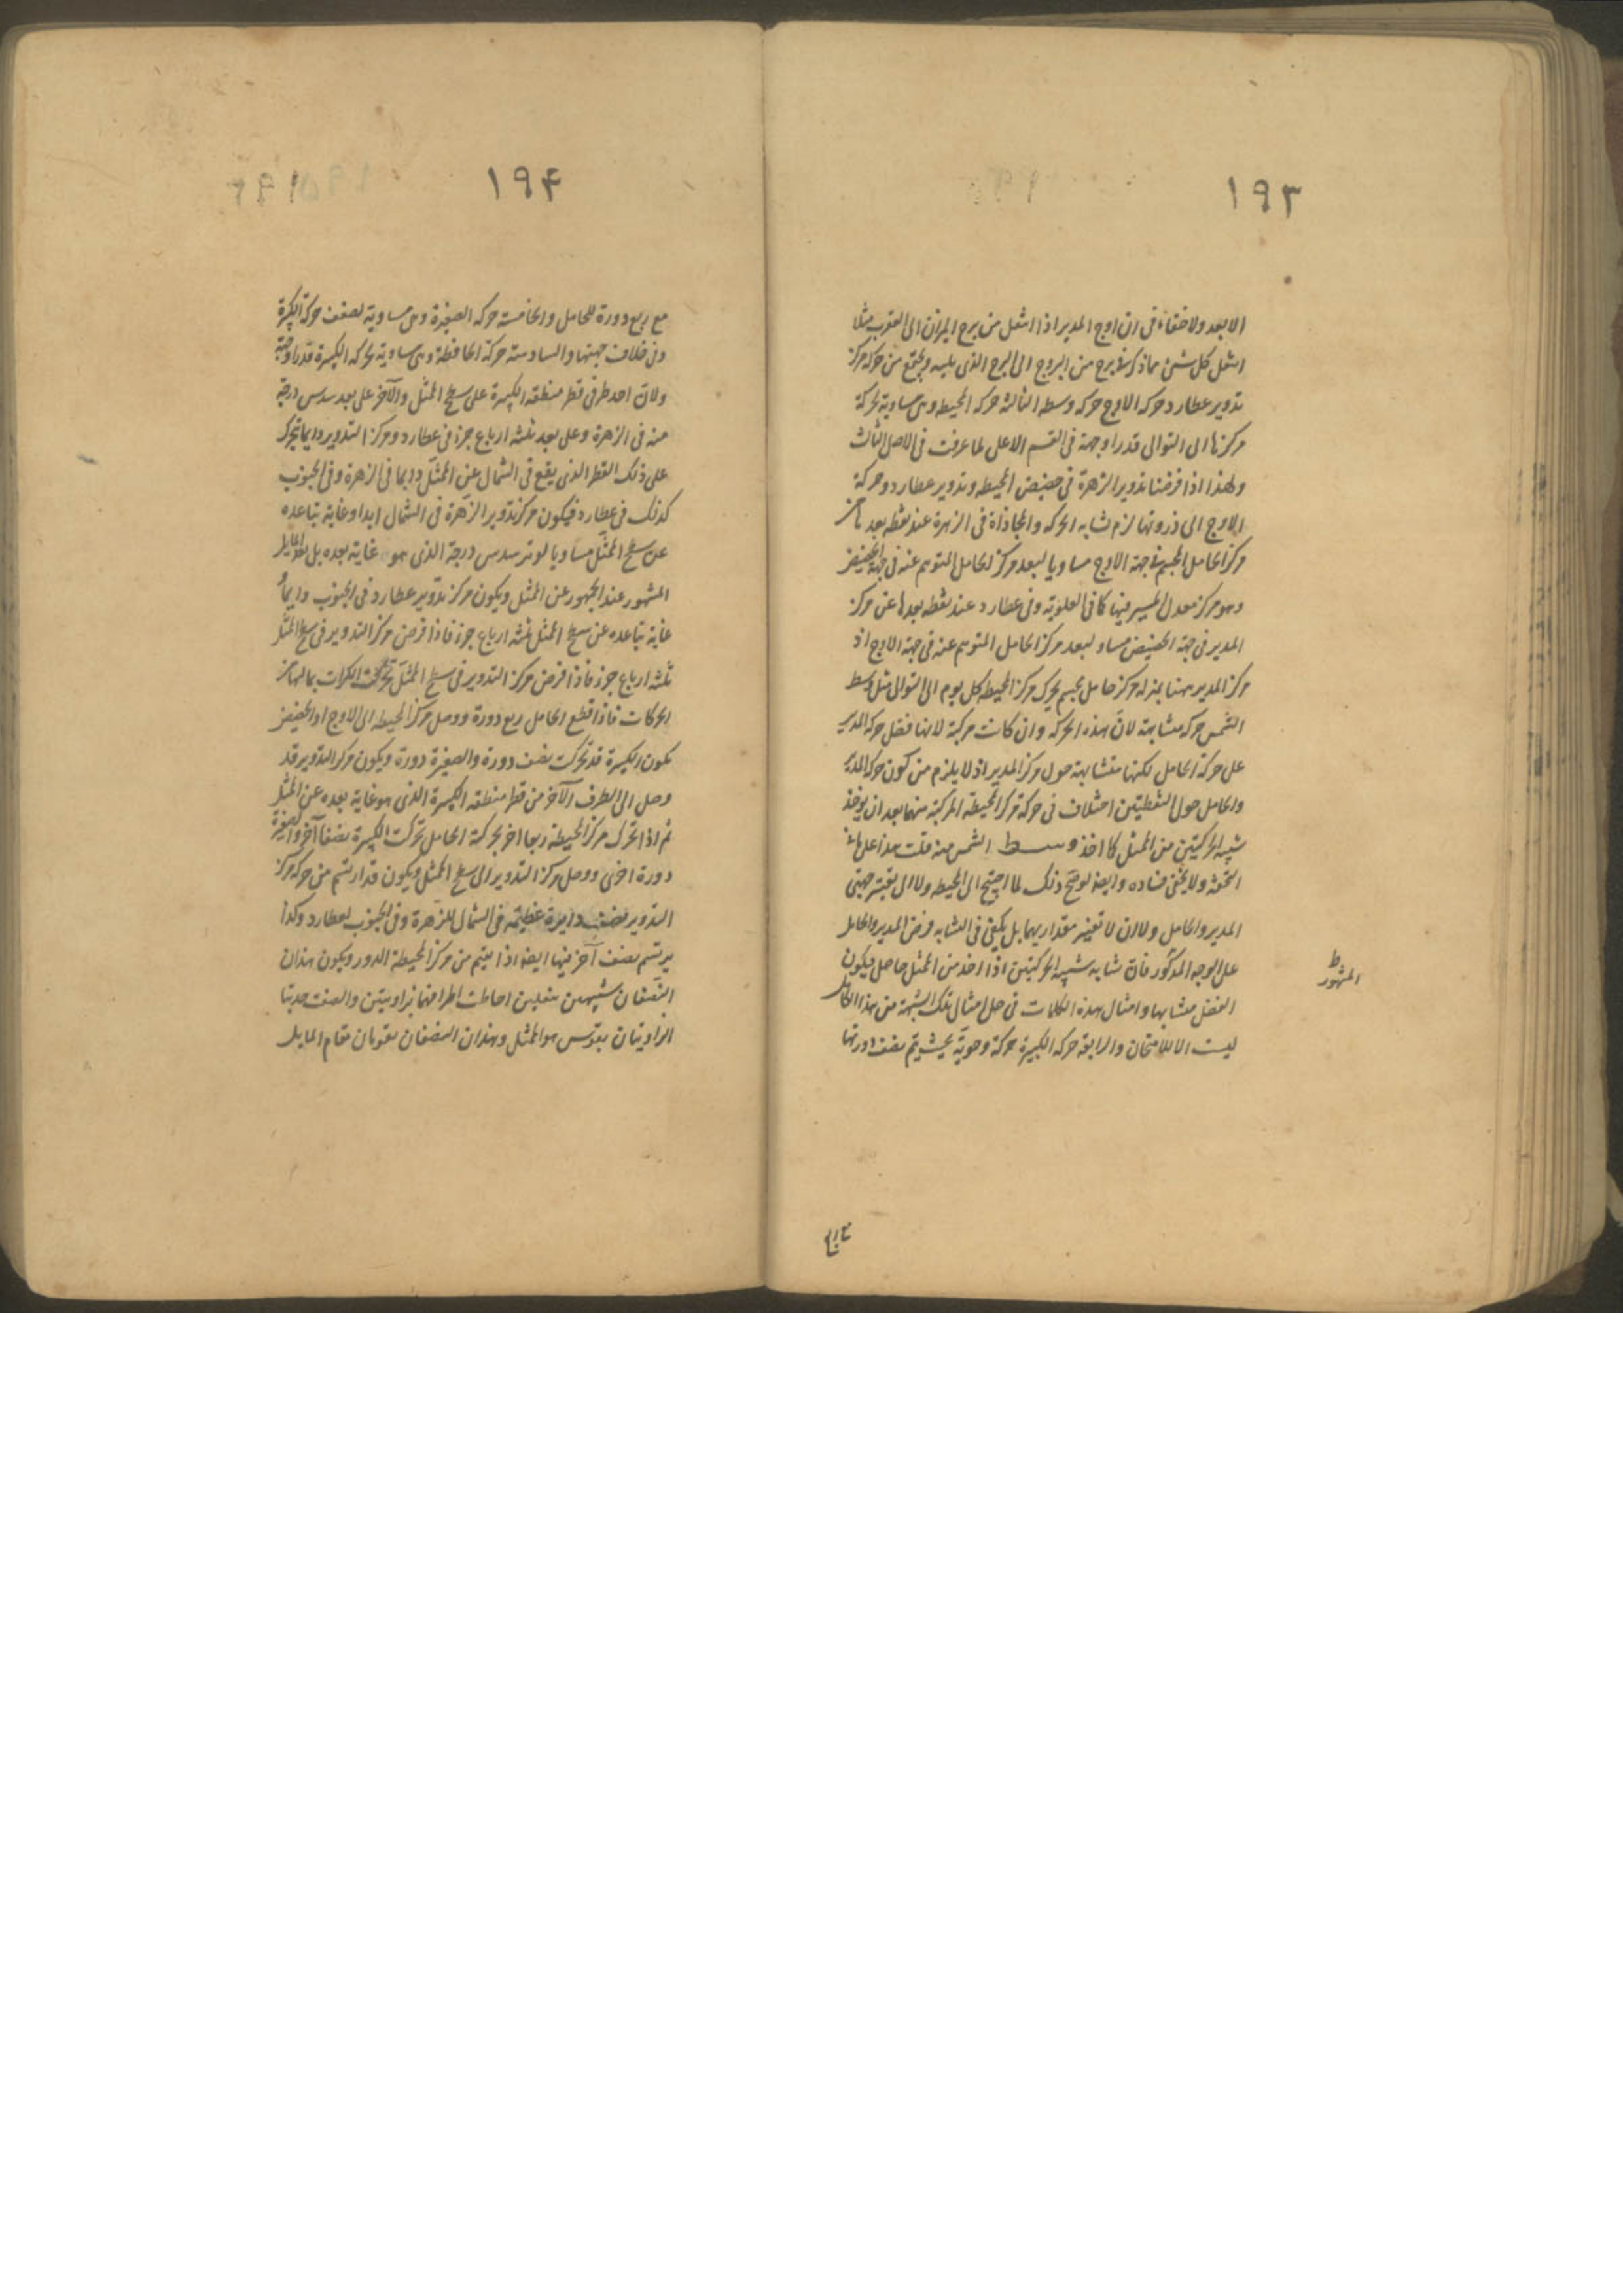 ١٩٣
الابعد ولا خفاء فى ان اوج المدير اذا انتقل من برج الميزان الى العقرب مثلا
انتقل كل شئ مما ذكر فى برج من البروج الى البرج الذى يليه ويجتمع من حركة مركز
تدوير عطارد حركة الاوج حركة وسطه الثالثة حركة المحيطه وهى مساوية لحركة
مركزها الى التوالى قدرا وجهة فى القسم الاعلى لما عرفت فى الاصل الثالث
ولهذا اذا فرضنا تدوير الزهرة فى حضيض المحيطه وتدوير عطارد وحركة
الاوج الى ذروتها لزم تشابه الحركه والمحاذاة فى الزهرة عند نقطه بعدها عن
مركز الحامل المجسم فى جهة الاوج مساويا لبعد مركز الحامل المتوهم عنه فى جهة الحضيض
وهو مركز معدل المسير فيها كما فى العلوية وفى عطارد عند نقطه بعدها عن مركز
المدير فى جهة الحضيض مساو لبعد مركز الحامل المتوهم عنه فى جهة الاوج اذ
مركز المدير ههنا بمنزلة مركز حامل مجسم يحرك مركز المحيطه كل يوم الى التوالى مثل وسط
الشمس حركه متشابهة لان هذه الحركه وان كانت مركبة لانها فضل حركه المدير
على حركة الحامل لكنها متشابهة حول مركز المدير اذ لا يلزم من كون حركة المدير
والحامل حول النقطتين اختلاف فى حركة مركز المحيطة المركبة منهما بعد ان يوخذ
شبيه الحركتين من الممثل كما اخذ وسط الشمس منه قلت هذا على ما فى
التحفة ولا يخفى فساده وايضا لو صح ذلك لما احتيج الى المحيطه ولا الى تغيير جهتى
المدير والحامل ولا الى تغيير مقداريهما بل يكفى فى التشابه فرض المدير والحامل
على الوجه المذكور فان تشابه شبيه الحركتين اذا اخذ من الممثل حاصل فيكون
الفضل متشابها وامثال هذه الكلمات فى حل امثال تلك الشبهة من هذا الفاضل
ليست الا للامتحان والرابعة حركه الكبيرة حركة وحوية بحيث يتم نصف دورتها
المشهور ط
مع ربع
١٩۴
مع ربع دورة للحامل والخامسة حركه الصغيرة وهى مساوية لضعف حركة الكبيرة
وفى خلاف جهتها والسادسة حركة الحافظة وهى مساوية لحركه الكبيرة قدرا وجهة
ولان احد طرفى قطر منطقه الكبيرة على سطح الممثل والآخر على بعد سدس درجة
منه فى الزهرة وعلى بعد ثلثه ارباع جزء فى عطارد ومركز التدوير دايما يتحرك
على ذلك القطر الذى يقع فى الشمال عن الممثل دايما فى الزهرة وفى الجنوب
كذلك فى عطارد فيكون مركز تدوير الزهرة فى الشمال ابدا وغاية تباعده
عن سطح الممثل مساويا لوتر سدس درجة الذى هو غاية بعده بل بعد المايل
المشهور عند الجمهور عن الممثل ويكون مركز تدوير عطارد فى الجنوب دايما
غاية تباعده عن سطح الممثل ثلثه ارباع جزء فاذا فرض مركز التدوير فى سطح الممثل
ثلثه ارباع جزء فاذا فرض مركز التدوير فى سطح الممثل تحركت الكرات بما لها من
الحركات فاذا قطع الحامل ربع دورة ووصل مركز المحيطه الى الاوج او الحضيض
يكون الكبيرة قد تحركت نصف دورة والصغيرة دورة ويكون مركز التدوير قد
وصل الى الطرف الآخر من قطر منطقه الكبيرة الذى هو غاية بعده عن الممثل
ثم اذا تحرك مركز المحيطة ربعا اخر بحركة الحامل تحركت الكبيرة نصفا آخر والصغيرة
دورة اخرى ووصل مركز التدوير الى سطح الممثل ويكون قد ارتسم من حركه مركز
التدوير نصف دايرة عظيمة فى الشمال للزهرة وفى الجنوب لعطارد وكذا
يرتسم نصف آخر فيها ايضا اذا يتم من مركز المحيطة الدور ويكون هذان
النصفان شبيهين بنعلين احاطت اطرافهما بزاويتين والصفت حدبتا
الزاويتان بقوس هو الممثل وهذان النصفان يقومان مقام المايل